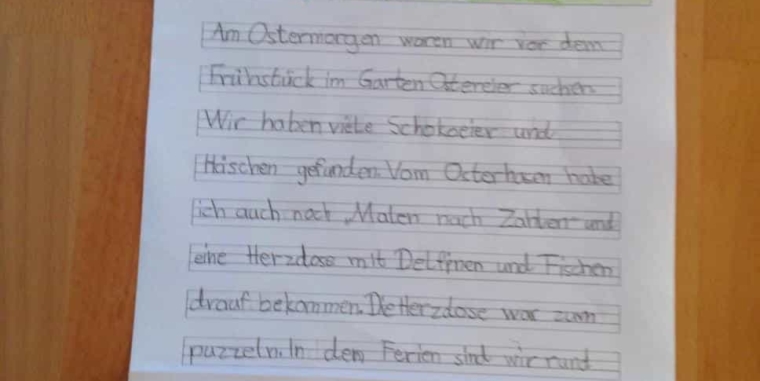 Am Ostermorgen waren wir vor dem
Frühstück im Garten Ostereier suchen.
Wir haben viele Schokoeier und
Häschen gefunden. Vom Osterhasen habe
ich auch noch „Malen nach Zahlen" und
eine Herzdose mit Delfinen und Fischen
drauf bekommen. Die Herzdose war zum
puzzeln. In den Ferien sind wir rund